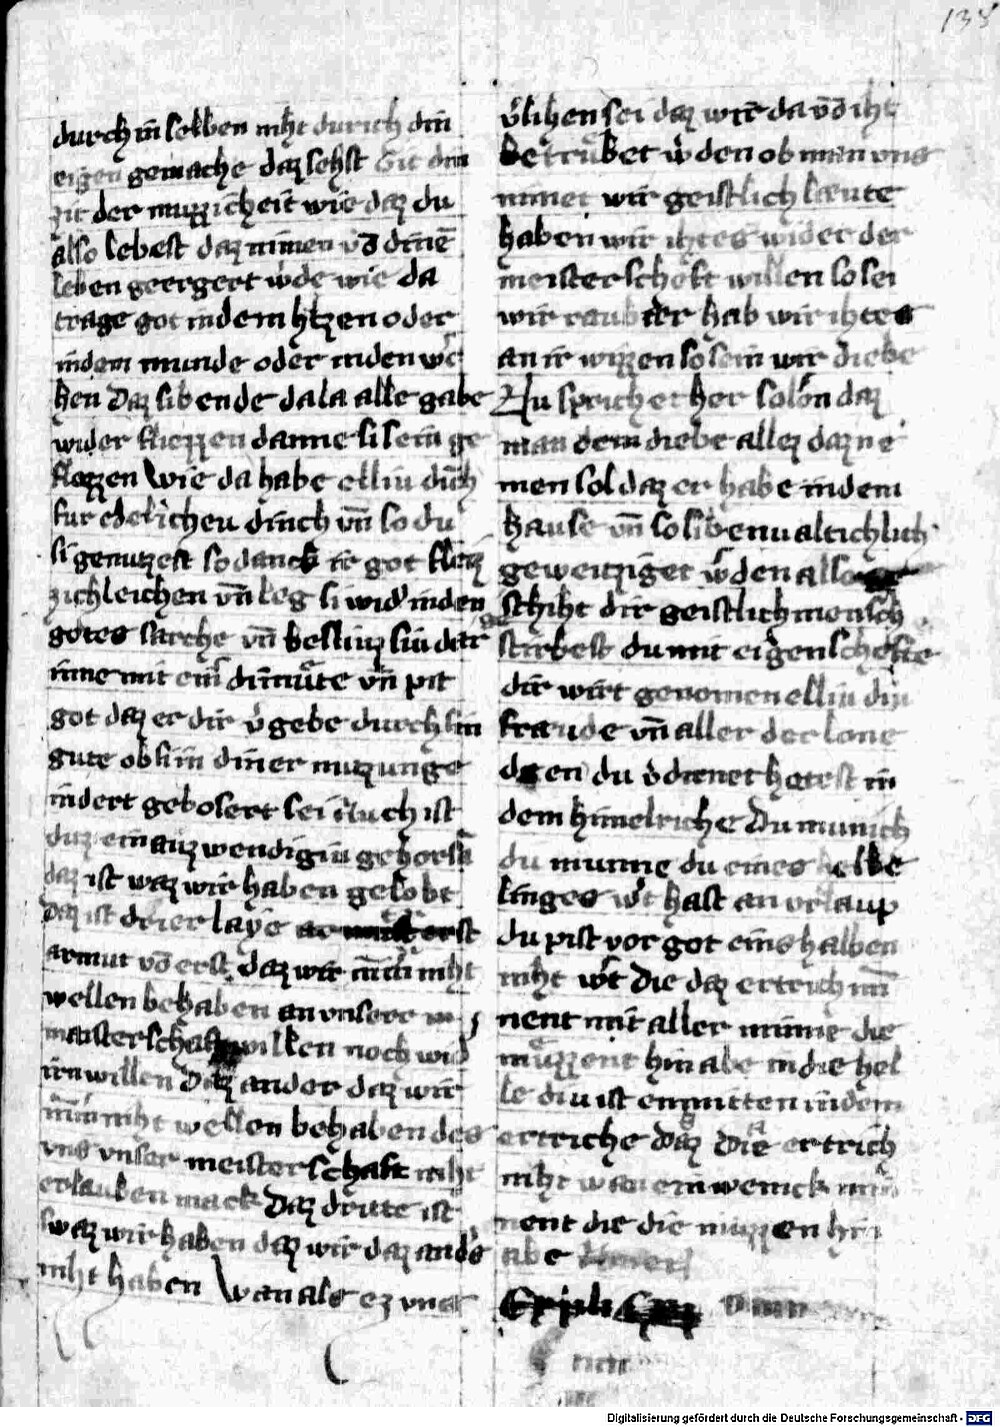 135
durch in selben niht durich din
eigen gemache daz sehst Git din
zit der muzzicheit wie daz du
also lebest daz nimen vō dinē
leben geergert wde wie du
trage got in dem htzen oder
in dem munde oder in den wͤc
ken Daz sibende da la alle gabe
wider fliezzen danne si sein ge
flozzen Wie du habe elliu dinch
fur edelicheu dinch vn̄ so du
si genutzest so danck ir got
zichleichen vn̄ leg si wider in den
gotes sarche vn̄ besliuz siu dar
inne mit einer dimͤute vn̄ pit
got daz er dir vͤgebe durch sin
gute ob si in diner nutzunge
indert gebosert sei Auch ist
duz ein auzwendigiu gehorsā
daz ist waz wir haben gelobt
Daz ist drier laye erst
armut vō erst daz wir nimer niht
wellen behaben an unsere
maisterschaft willen noch wider
irn willen Daz ander daz wir
nimer niht wellen behaben des
uns unser meisterschaft niht
erlauben mack Daz dritte ist
swaz wir haben daz wir daz anders
niht haben Wan als ez uns
vͤlihen sei daz wir da vō iht
betrubet wͤden ob man uns
nimet wir geistlich læute
haben wir ihtes wider der
meisterscheft willen so sei
wir rauber hab wir ihtes
an ir wizzen so sein wir diebe
Nu sprichet her solon daz
man dem diebe allez daz ne
men sol daz er habe in dem
hause vn̄ so sibenualtichlich
geweitziget wͤden also ge
schiht dir geistlich mensch
stirbest du mit eigenschefte
dir wirt genomen elliu din
fraude vn̄ aller der lone
den du vͤdienet hetest in
dem himelriche Du munich
du munne du eines helbe
linges wͤt hast an urlaup
du pist vor got eins halben
niht wͤt Die daz ertrich min
nent mit aller minne die
muzzent hin abe in die hel
le diu ist enmitten in dem
ertriche Daz Die ertrich
niht wan ein wenick min
nent die die muzzen hin
abe Amen